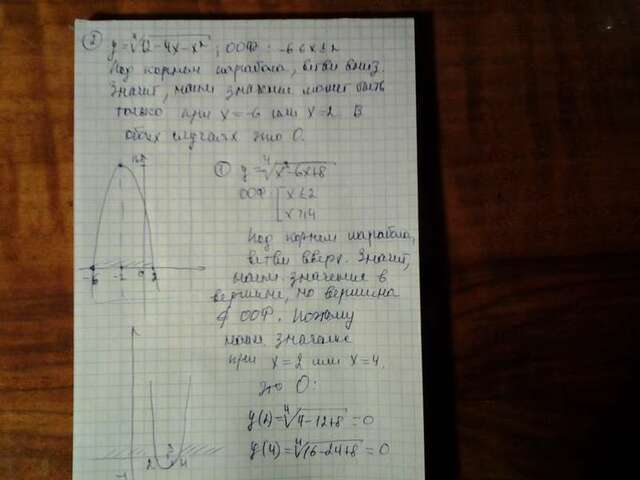 ② y = ⁴√12-4x-x² ; ООФ: -6≤x≤2
Под корнем парабола, ветви вниз.
Значит, наим значение может быть
только при x=-6 или x=2. В
обоих случаях это 0.
16
-6 -2 0 2
① y = ⁴√x²-6x+8
ООФ: [x≤2
x≥4
Под корнем парабола,
ветви вверх. Значит,
наим. значение в
вершине, но вершина
∉ ООФ. Поэтому
наим значение
при x=2 или x=4.
это 0:
y(2)=⁴√4-12+8 = 0
y(4)=⁴√16-24+8 = 0
2 3 4
-1